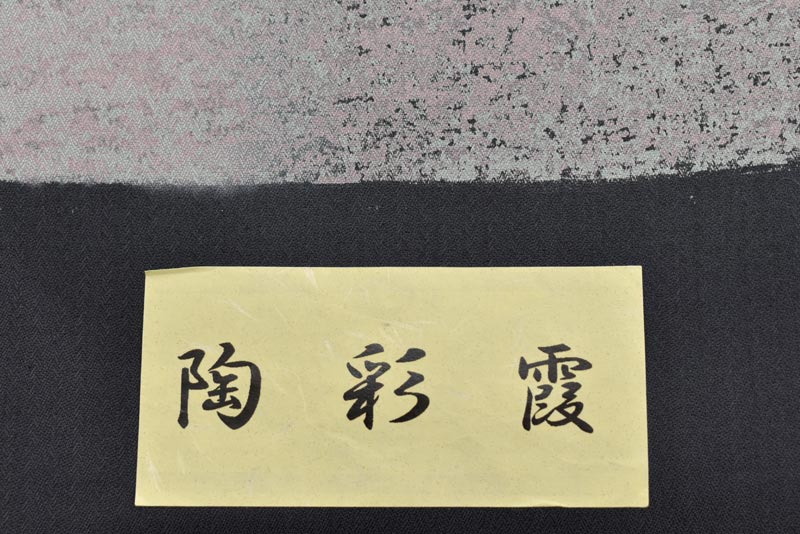 陶彩霞